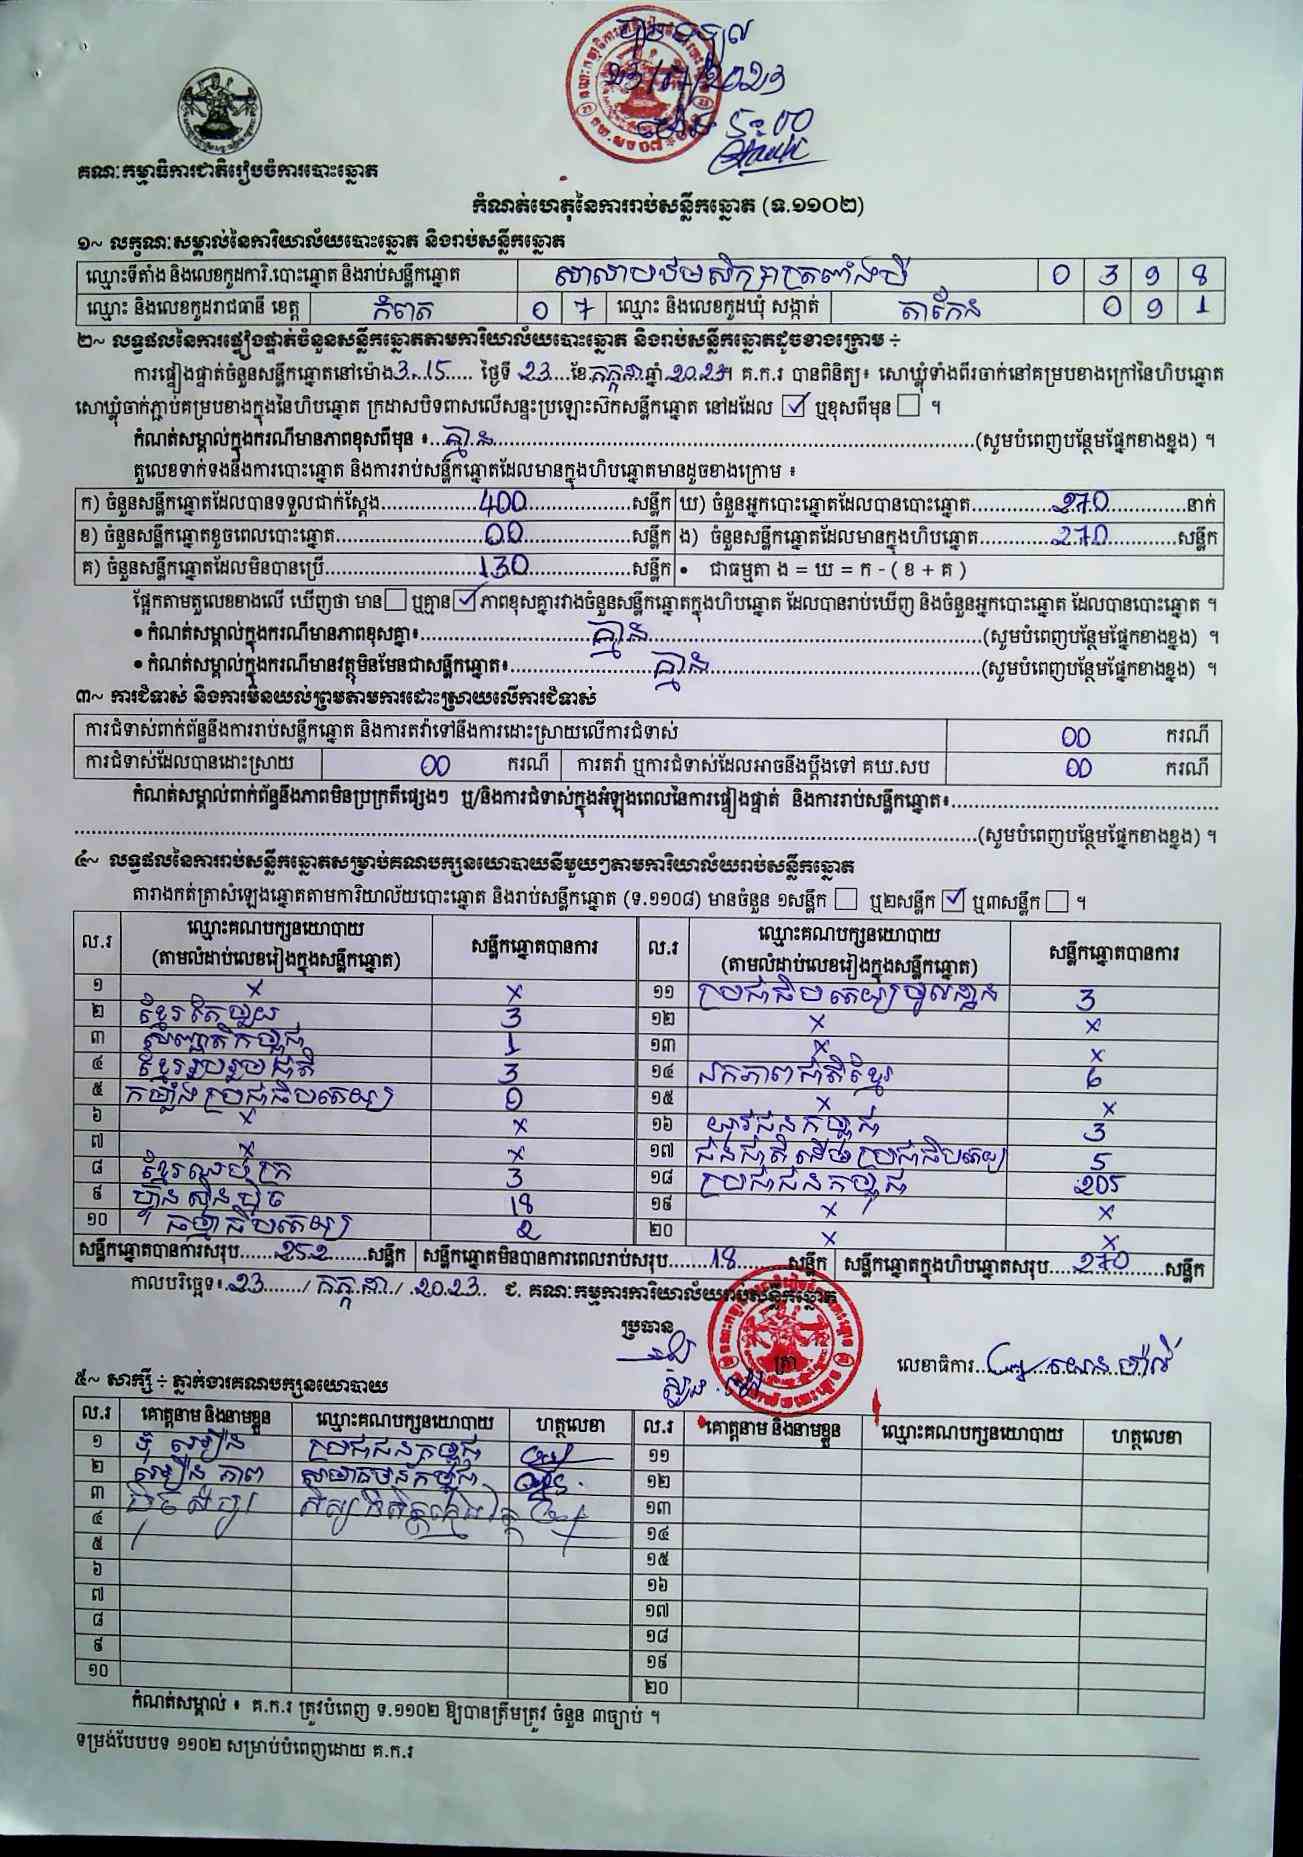 បានទទួល
23/07/2023
ម៉ោង 5:00
គណៈកម្មាធិការជាតិរៀបចំការបោះឆ្នោត
កំណត់ហេតុនៃការរាប់សន្លឹកឆ្នោត (ទ.១១០២)
១~ លក្ខណៈសម្គាល់នៃការិយាល័យបោះឆ្នោត និងរាប់សន្លឹកឆ្នោត
ឈ្មោះទីតាំង និងលេខកូដការិ.បោះឆ្នោត និងរាប់សន្លឹកឆ្នោត សាលាបឋមសិក្សាត្រពាំងបី 0 3 9 8
ឈ្មោះ និងលេខកូដរាជធានី ខេត្ត កំពត 0 7 ឈ្មោះ និងលេខកូដឃុំ សង្កាត់ តាកែន 0 9 1
២~ លទ្ធផលនៃការផ្ទៀងផ្ទាត់ចំនួនសន្លឹកឆ្នោតតាមការិយាល័យបោះឆ្នោត និងរាប់សន្លឹកឆ្នោតដូចខាងក្រោម ÷
ការផ្ទៀងផ្ទាត់ចំនួនសន្លឹកឆ្នោតនៅម៉ោង 3:15 ថ្ងៃទី 23 ខែ កក្កដា ឆ្នាំ 2023។ គ.ក.រ បានពិនិត្យ៖ សោឃ្លុំទាំងពីរចាក់នៅគម្របខាងក្រៅនៃហិបឆ្នោត
សោឃ្លុំចាក់ភ្ជាប់គម្របខាងក្នុងនៃហិបឆ្នោត ក្រដាសបិទពាសលើសន្ទះប្រឡោះស៊កសន្លឹកឆ្នោត នៅដដែល ☑ ឬខុសពីមុន ☐ ។
កំណត់សម្គាល់ក្នុងករណីមានភាពខុសពីមុន ៖ គ្មាន (សូមបំពេញបន្ថែមផ្នែកខាងខ្នង) ។
តួលេខទាក់ទងនឹងការបោះឆ្នោត និងការរាប់សន្លឹកឆ្នោតដែលមានក្នុងហិបឆ្នោតមានដូចខាងក្រោម ៖
ក) ចំនួនសន្លឹកឆ្នោតដែលបានទទួលជាក់ស្តែង 400 សន្លឹក ឃ) ចំនួនអ្នកបោះឆ្នោតដែលបានបោះឆ្នោត 270 នាក់
ខ) ចំនួនសន្លឹកឆ្នោតខូចពេលបោះឆ្នោត 00 សន្លឹក ង) ចំនួនសន្លឹកឆ្នោតដែលមានក្នុងហិបឆ្នោត 270 សន្លឹក
គ) ចំនួនសន្លឹកឆ្នោតដែលមិនបានប្រើ 130 សន្លឹក • ជាធម្មតា ង = ឃ = ក - ( ខ + គ )
ផ្អែកតាមតួលេខខាងលើ ឃើញថា មាន ☐ ឬគ្មាន ☑ ភាពខុសគ្នារវាងចំនួនសន្លឹកឆ្នោតក្នុងហិបឆ្នោត ដែលបានរាប់ឃើញ និងចំនួនអ្នកបោះឆ្នោត ដែលបានបោះឆ្នោត ។
• កំណត់សម្គាល់ក្នុងករណីមានភាពខុសគ្នា៖ គ្មាន (សូមបំពេញបន្ថែមផ្នែកខាងខ្នង) ។
• កំណត់សម្គាល់ក្នុងករណីមានវត្ថុមិនមែនជាសន្លឹកឆ្នោត៖ គ្មាន (សូមបំពេញបន្ថែមផ្នែកខាងខ្នង) ។
៣~ ការជំទាស់ និងការមិនយល់ព្រមតាមការដោះស្រាយលើការជំទាស់
ការជំទាស់ពាក់ព័ន្ធនឹងការរាប់សន្លឹកឆ្នោត និងការតវ៉ាទៅនឹងការដោះស្រាយលើការជំទាស់ 00 ករណី
ការជំទាស់ដែលបានដោះស្រាយ 00 ករណី ការតវ៉ា ឬការជំទាស់ដែលអាចនឹងប្តឹងទៅ គឃ.សប 00 ករណី
កំណត់សម្គាល់ពាក់ព័ន្ធនឹងភាពមិនប្រក្រតីផ្សេងៗ ឬ/និងការជំទាស់ក្នុងអំឡុងពេលនៃការផ្ទៀងផ្ទាត់ និងការរាប់សន្លឹកឆ្នោត៖
(សូមបំពេញបន្ថែមផ្នែកខាងខ្នង) ។
៤~ លទ្ធផលនៃការរាប់សន្លឹកឆ្នោតសម្រាប់គណបក្សនយោបាយនីមួយៗតាមការិយាល័យរាប់សន្លឹកឆ្នោត
តារាងកត់ត្រាសំឡេងឆ្នោតតាមការិយាល័យបោះឆ្នោត និងរាប់សន្លឹកឆ្នោត (ទ.១១០៨) មានចំនួន ១សន្លឹក ☐ ឬ២សន្លឹក ☑ ឬ៣សន្លឹក ☐ ។
ល.រ ឈ្មោះគណបក្សនយោបាយ (តាមលំដាប់លេខរៀងក្នុងសន្លឹកឆ្នោត) សន្លឹកឆ្នោតបានការ ល.រ ឈ្មោះគណបក្សនយោបាយ (តាមលំដាប់លេខរៀងក្នុងសន្លឹកឆ្នោត) សន្លឹកឆ្នោតបានការ
១ x x ១១ ប្រជាធិបតេយ្យមូលដ្ឋាន 3
២ ខ្មែរតែមួយ 3 ១២ x x
៣ សញ្ជាតិកម្ពុជា 1 ១៣ x x
៤ ខ្មែររួបរួមជាតិ 3 ១៤ ឯកភាពជាតិខ្មែរ 6
៥ កម្លាំងប្រជាធិបតេយ្យ 0 ១៥ x x
៦ x x ១៦ យុវជនកម្ពុជា 3
៧ x x ១៧ ជនជាតិដើមប្រជាធិបតេយ្យ 5
៨ ខ្មែរឈប់ក្រ 3 ១៨ ប្រជាជនកម្ពុជា 205
៩ ហ្វ៊ុនស៊ិនប៉ិច 18 ១៩ x x
១០ ធម្មាធិបតេយ្យ 2 ២០ x x
សន្លឹកឆ្នោតបានការសរុប 252 សន្លឹក សន្លឹកឆ្នោតមិនបានការពេលរាប់សរុប 18 សន្លឹក សន្លឹកឆ្នោតក្នុងហិបឆ្នោតសរុប 270 សន្លឹក
កាលបរិច្ឆេទ៖ 23 / កក្កដា / 2023 ជ. គណៈកម្មការការិយាល័យរាប់សន្លឹកឆ្នោត
ប្រធាន
ត្រា
លេខាធិការ
៥~ សាក្សី ÷ ភ្នាក់ងារគណបក្សនយោបាយ
ល.រ គោត្តនាម និងនាមខ្លួន ឈ្មោះគណបក្សនយោបាយ ហត្ថលេខា ល.រ គោត្តនាម និងនាមខ្លួន ឈ្មោះគណបក្សនយោបាយ ហត្ថលេខា
១ ប្រជាជនកម្ពុជា ១១
២ ១២
៣ ១៣
៤ ១៤
៥ ១៥
៦ ១៦
៧ ១៧
៨ ១៨
៩ ១៩
១០ ២០
កំណត់សម្គាល់ ៖ គ.ក.រ ត្រូវបំពេញ ទ.១១០២ ឱ្យបានត្រឹមត្រូវ ចំនួន ៣ច្បាប់ ។
ទម្រង់បែបបទ ១១០២ សម្រាប់បំពេញដោយ គ.ក.រ